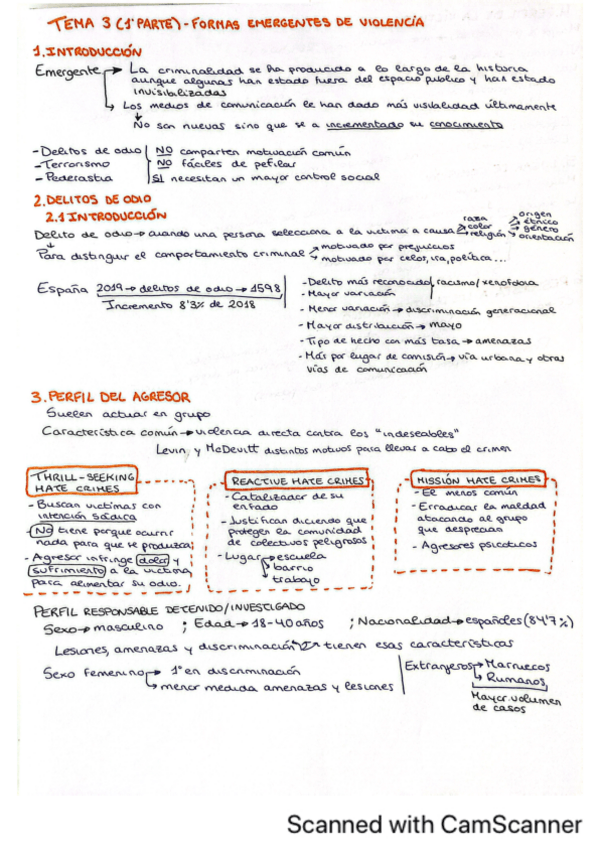 TEMA 3 (1ª PARTE) - FORMAS EMERGENTES DE VIOLENCIA
1. INTRODUCCIÓN
Emergente → La criminalidad se ha producido a lo largo de la historia
aunque algunas han estado fuera del espacio publico y han estado
invisibilizadas
↳ Los medios de comunicación le han dado más visibilidad últimamente
↓
No son nuevas sino que se a incrementado su conocimiento
- Delitos de odio | NO comparten motivación común
- Terrorismo | NO fáciles de pefilar
- Pederastia | SI necesitan un mayor control social
2. DELITOS DE ODIO
2.1 INTRODUCCIÓN
Delito de odio → cuando una persona selecciona a la victima a causa → raza → color → religión → origen → étnico → género → orientación
↓
Para distinguir el comportamiento criminal → motivado por prejuicios
→ motivado por celos, ira, política...
España 2019 → delitos de odio → 1598
Incremento 8'3% de 2018
- Delito más reconocido/racismo/xenofobia
- Mayor variación
- Menor variación → discriminación generacional
- Mayor distribución → mayo
- Tipo de hecho con más tasa → amenazas
- Más por lugar de comisión → vía urbana y otras
vías de comunicación
3. PERFIL DEL AGRESOR
Suelen actuar en grupo
Característica común → violencia directa contra los "indeseables"
Levin y McDevitt distintos motivos para llevar a cabo el crimen
THRILL-SEEKING
HATE CRIMES
- Buscan victimas con
intención sádica
No tiene porque ocurrir
nada para que se produzca
- Agresor infringe dolor y
sufrimiento a la victima
para alimentar su odio.
REACTIVE HATE CRIMES
- Catalizador de su
enfado
- Justifican diciendo que
protegen la comunidad
de colectivos peligrosos
- Lugar → escuela
→ barrio
→ trabajo
MISSIÓN HATE CRIMES
- El menos común
- Erradicar la maldad
atacando al grupo
que desprecian
- Agresores psicoticos
PERFIL RESPONSABLE DETENIDO/INVESTIGADO
Sexo → masculino ; Edad → 18-40 años ; Nacionalidad → españoles (84'7%)
Lesiones, amenazas y discriminación tienen esas características
Sexo femenino → 1º en discriminación
↳ menor medida amenazas y lesiones
Extranjeros → Marruecos
↳ Rumanos
Mayor volumen
de casos
Scanned with CamScanner